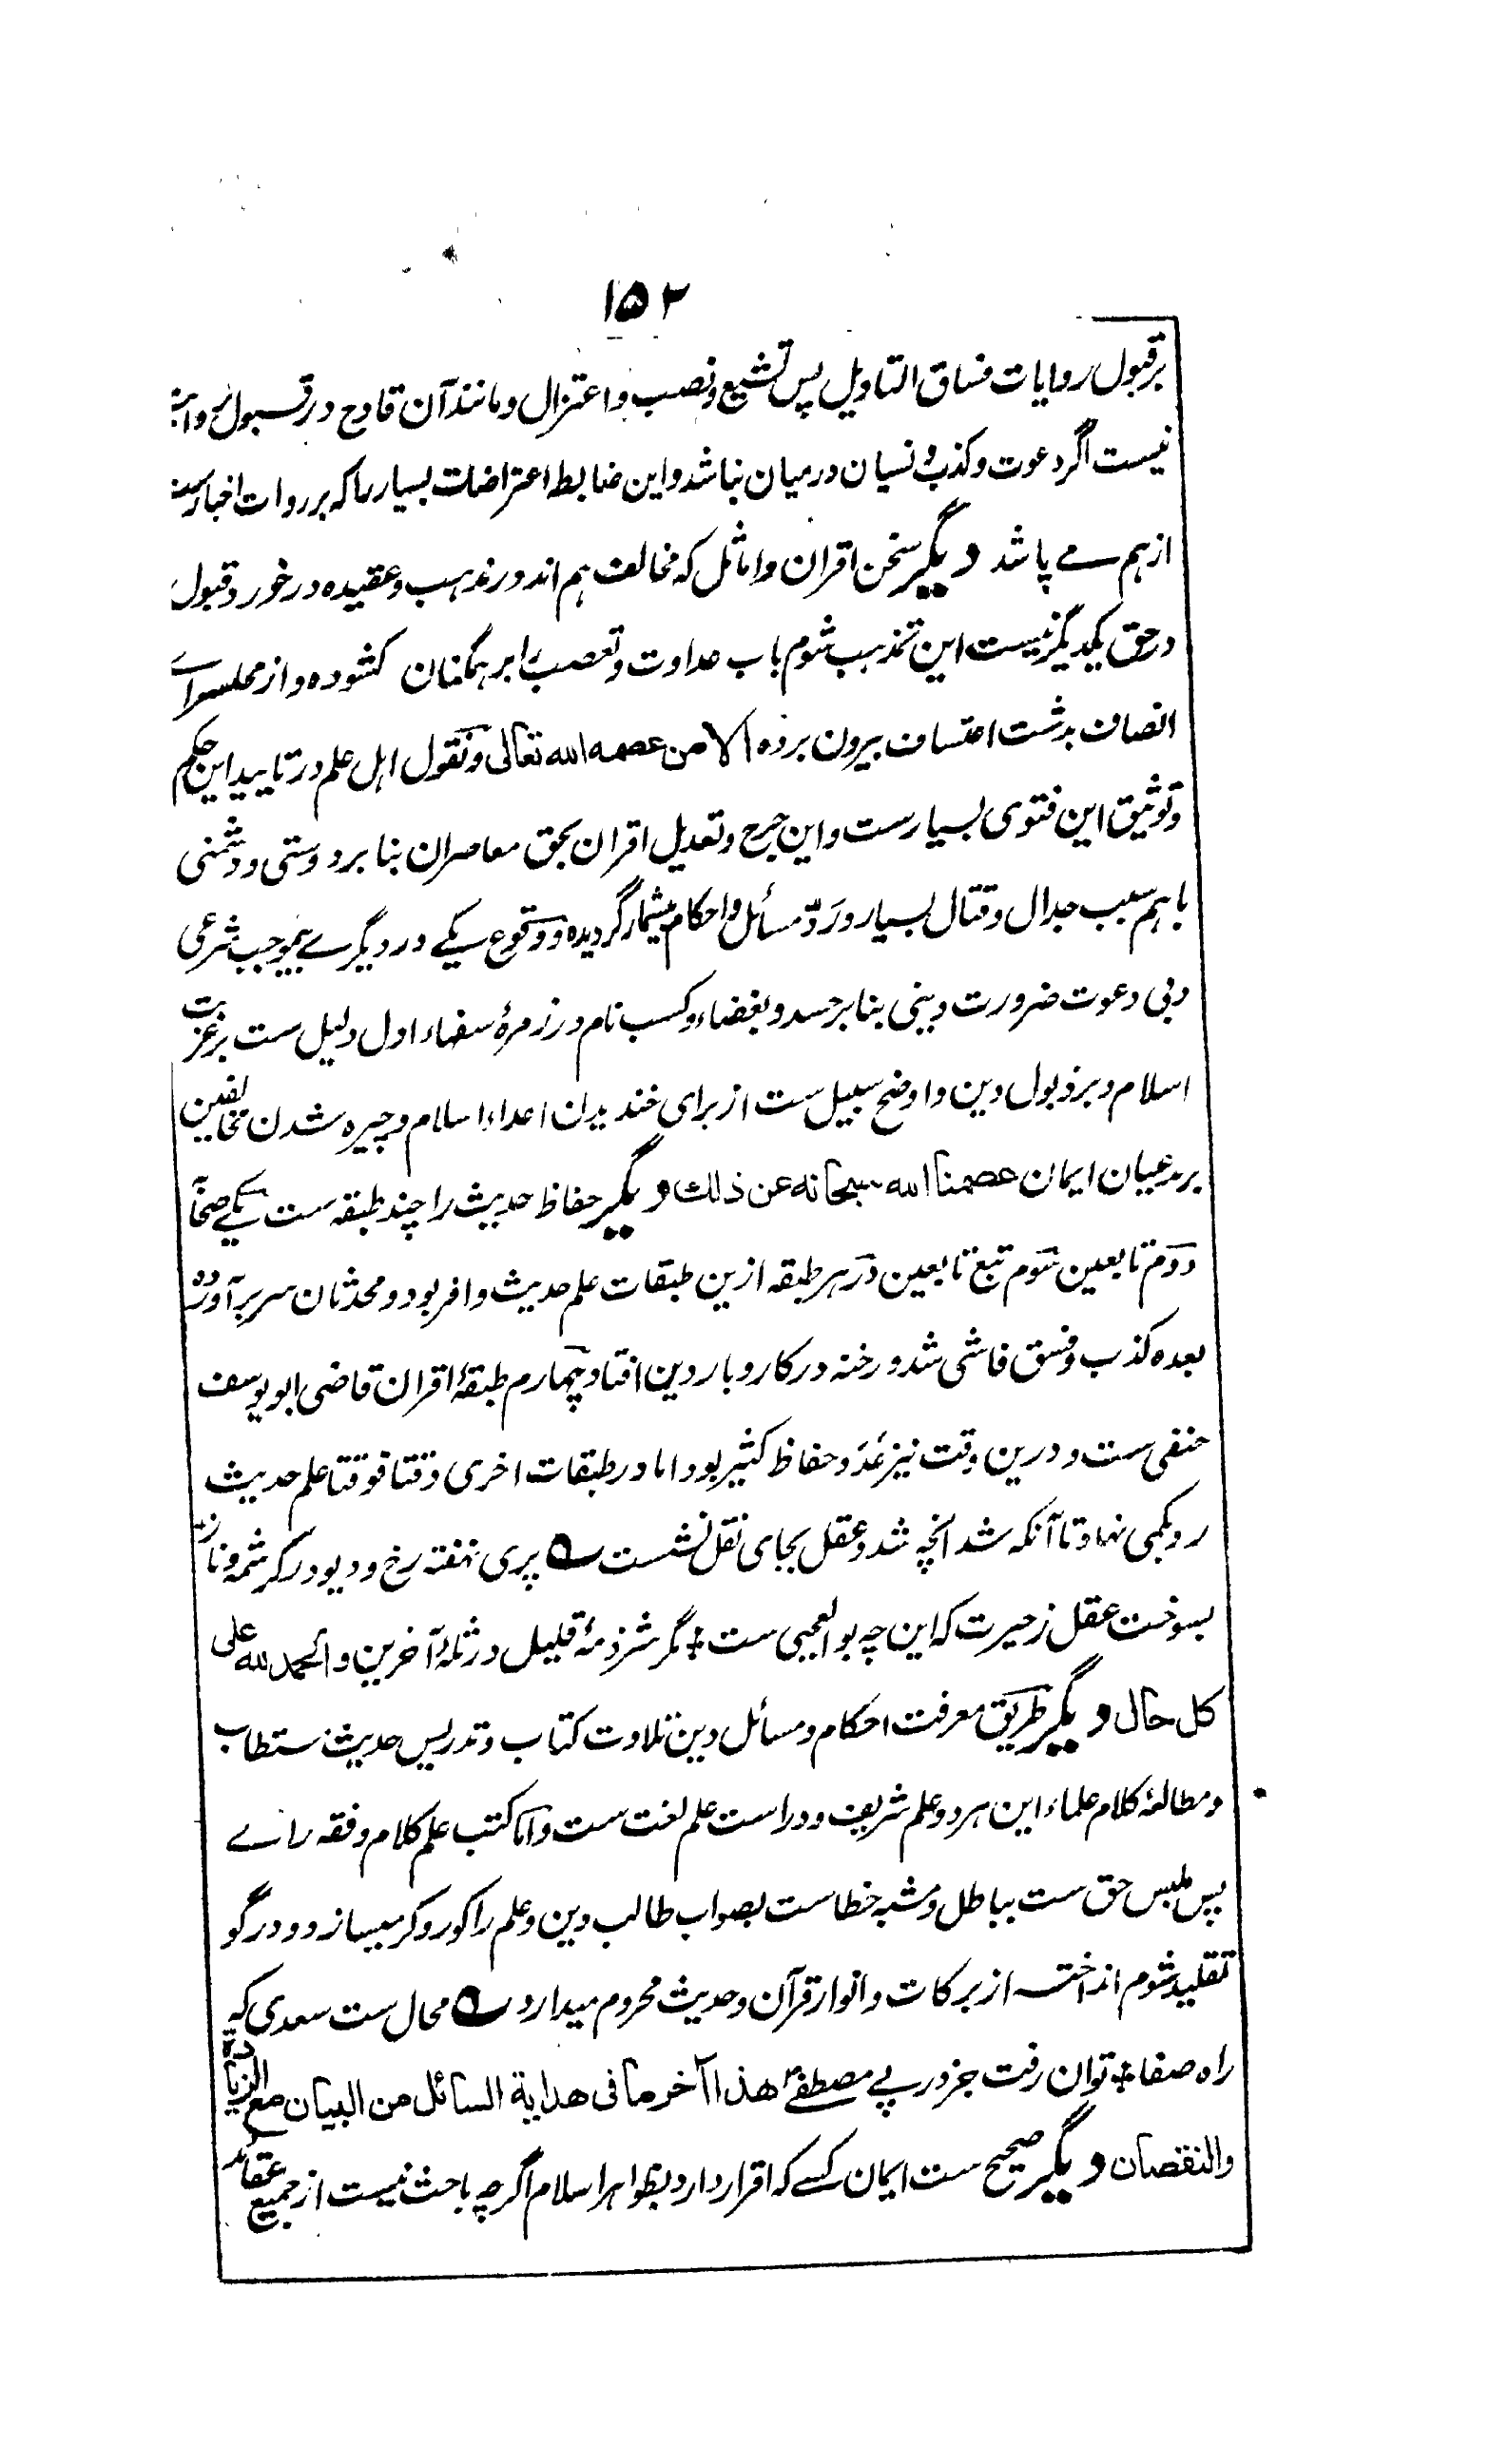 ۱۵۲
بر قبول روایات فساق التاویل پس تشیع و نصب و اعتزال و مانند آن قادح در قبول روایت
نیست اگر دعوت و کذب و نسیان درمیان نباشد و این ضابط اعتراضات بسیار را که بر روات اخبار ست
از هم مے پاشد دیگر سخن اقران و اماثل که مخالف هم اند در مذہب و عقیده در خور قبول
در حق یکدیگر نیست این تمذہب شوم باب عداوت و تعصب را بر ہمگنان کشوده و از مجلسراے
انصاف بدشت اعتساف بیرون برده الا من عصمه الله تعالی و نقول اہل علم در تایید این حکم
و توثیق این فتوی بسیار ست و این جرح و تعدیل اقران بحق معاصران بنا بر دوستی و دشمنی
باہم سبب جدال و قتال بسیار و ردّ مسائل و احکام بیشمار گردیده و وقوع یکے در دیگرے بیموجب شرعی
و بی دعوت ضرورت دینی بنا بر حسد و بغضاء و کسب نام در زمرۂ سفهاء ادل دلیل ست بر غربت
اسلام و بر ذبول دین و اوضح سبیل ست از برای خندیدن اعداء اسلام و چیره شدن مخالفین
بر مدعیان ایمان عصمنا الله سبحانه عن ذلك دیگر حفاظ حدیث را چند طبقه ست یکے صحابه
دوم تابعین سوم تبع تابعین در ہر طبقه ازین طبقات علم حدیث وافر بود و محدثان سر برآورده
بعده کذب و فسق فاشی شد و رخنه در کار و بار دین افتاد چهارم طبقۂ اقران قاضی ابو یوسف
حنفی ست و درین وقت نیز عدد حفاظ کثیر بود اما در طبقات اخری وقتا فوقتا علم حدیث
رو بکمی نهاد تا آنکه شد آنچه شد و عقل بجای نقل نشست ؎ پری نهفته رخ و دیو در کرشمه و ناز
بسوخت عقل ز حیرت که این چه بو العجبی ست ٭ مگر شرذمۂ قلیل در ثلۂ آخرین و الحمد لله علی
کل حال دیگر طریق معرفت احکام و مسائل دین تلاوت کتاب و تدریس حدیث مستطاب
و مطالعۂ کلام علماء این ہر دو علم شریف و دراست علم لغت ست و اما کتب علم کلام و فقه راے
پس ملبس حق ست بباطل و مشبه خطاست بصواب طالب دین و علم را کور و کر میسازد و در گو
تقلید شوم انداخته از برکات و انوار قرآن و حدیث محروم میدارد ؎ محال ست سعدی که
راه صفا ٭ توان رفت جز در پے مصطفے هذا آخر ما فی هدایة السائل من البیان مع الزیادة
والنقصان دیگر صحیح ست ایمان کسے که اقرار دارد بظواہر اسلام اگرچه باحث نیست از جمیع عقائد